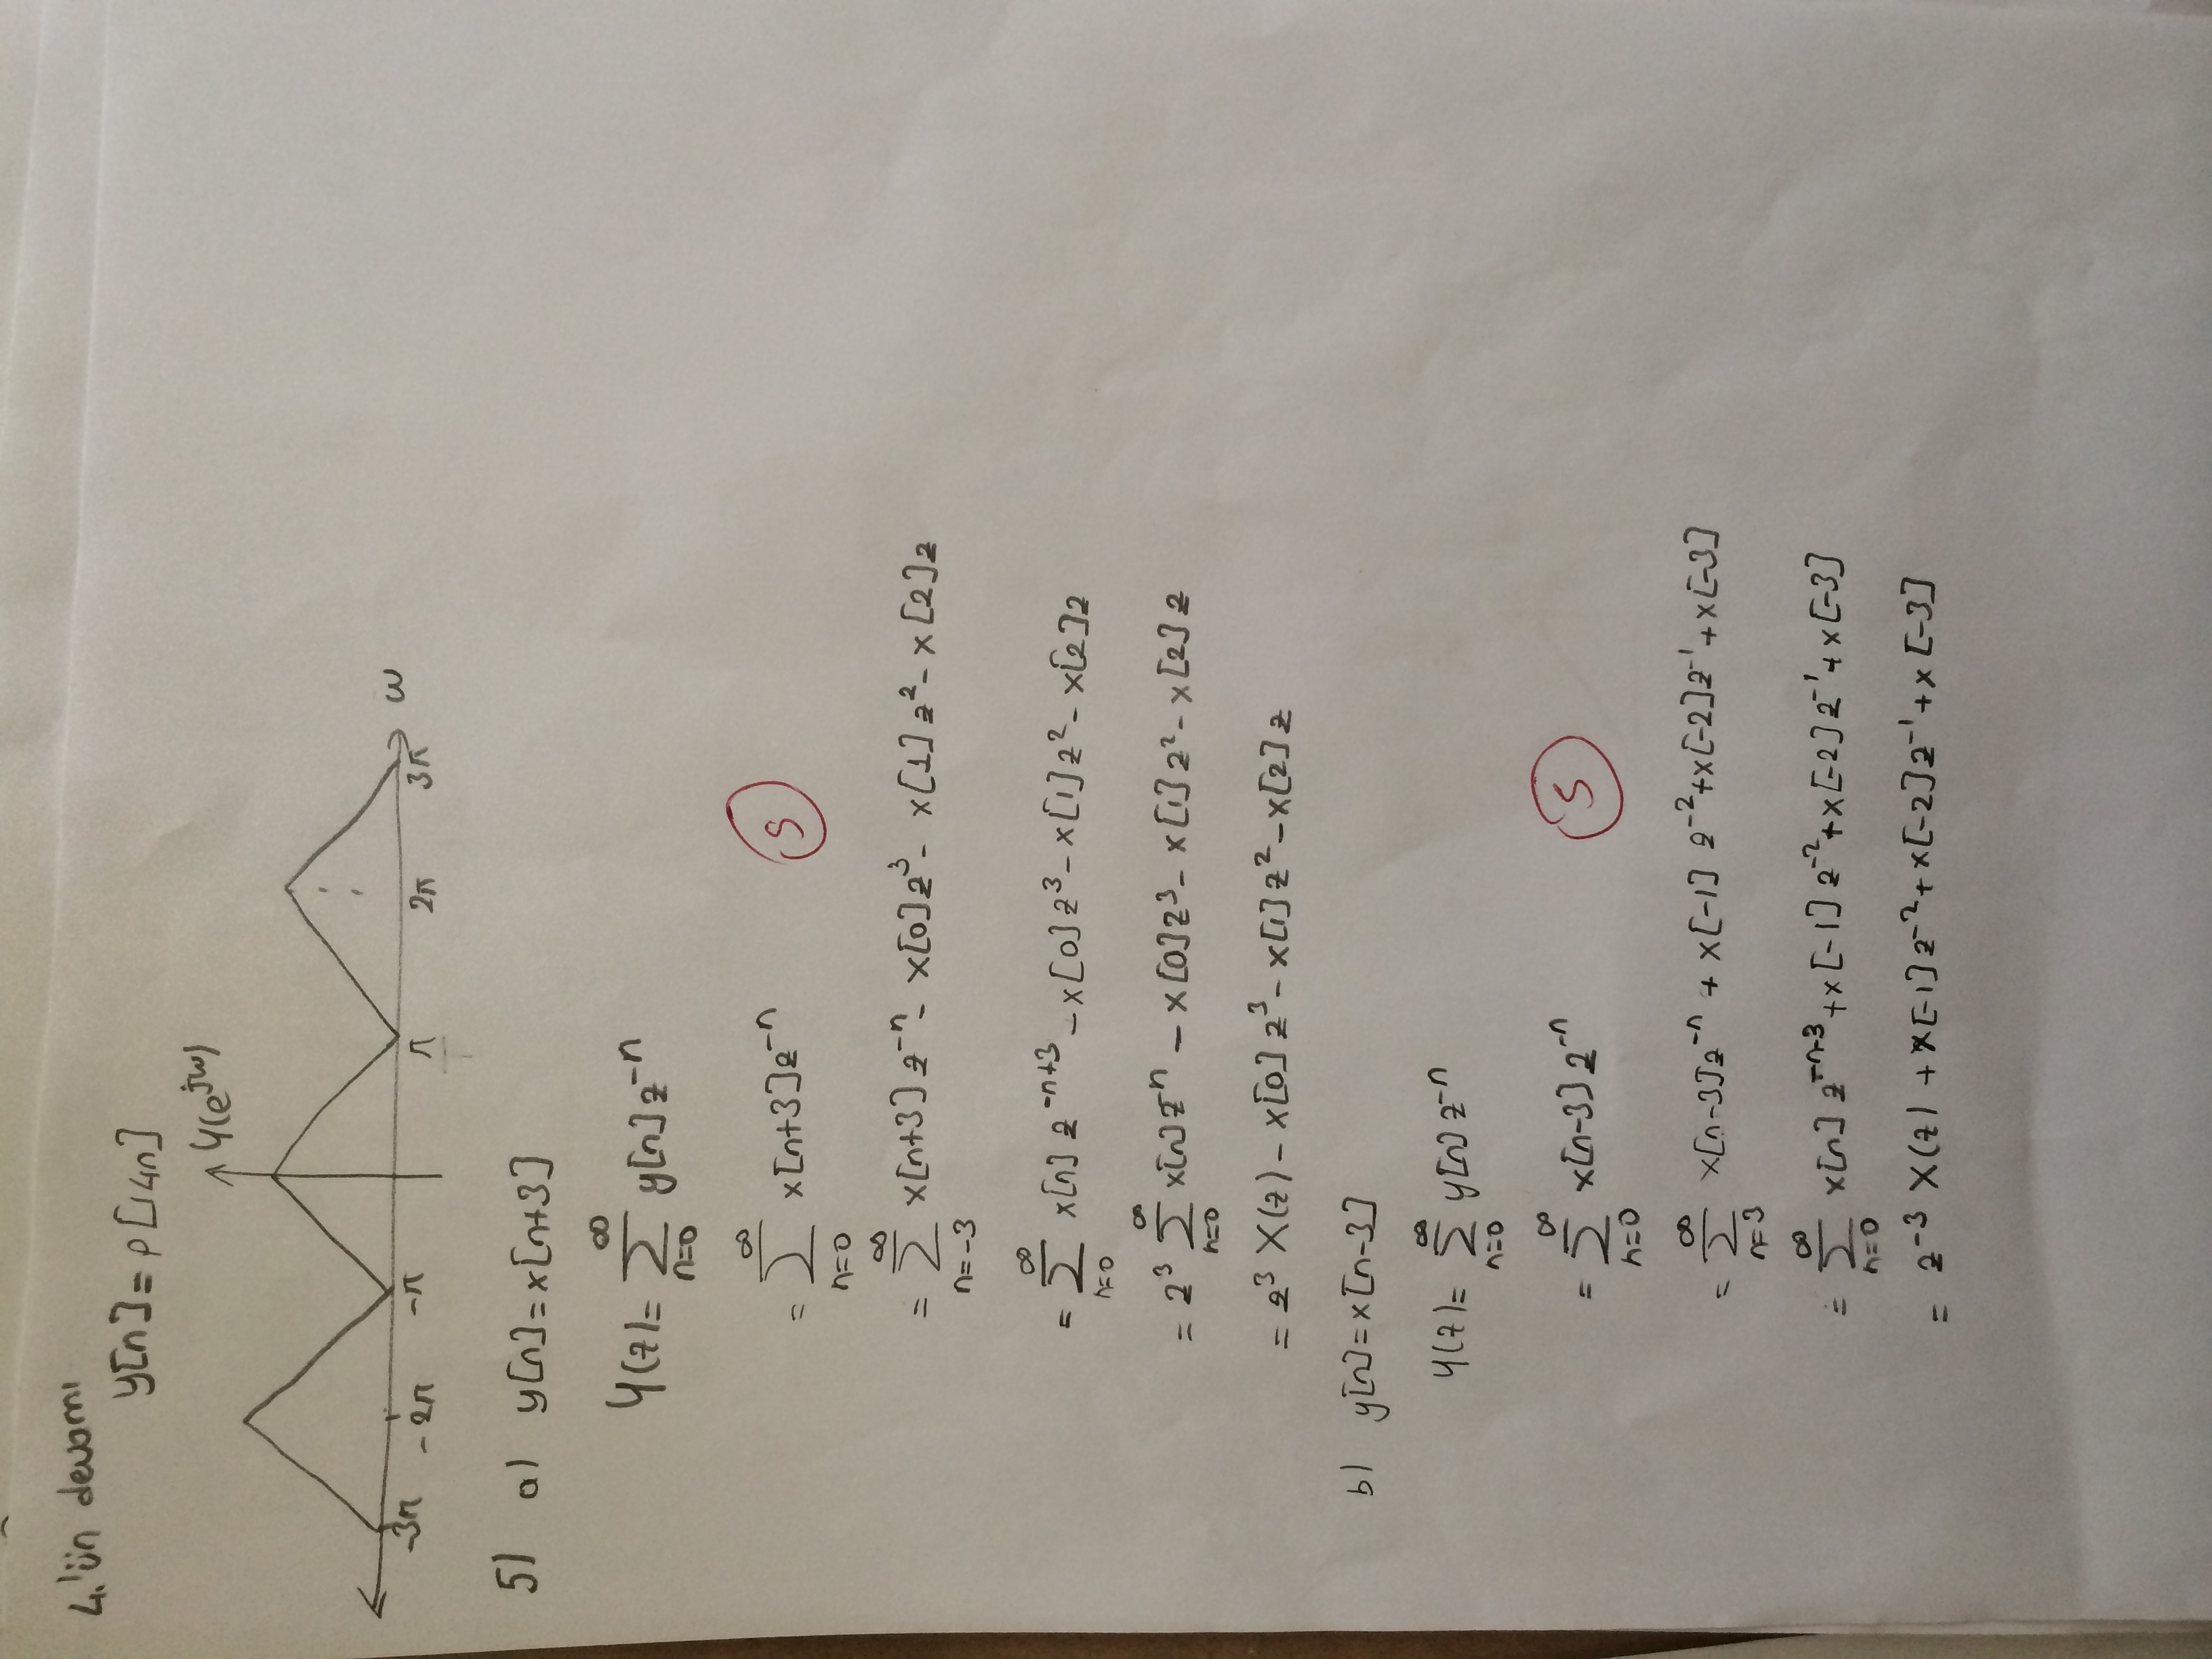 4.'ün devamı
y[n]=p[14n]
Y(e^jω)
-3π -2π -π π 2π 3π ω
5) a) y[n]=x[n+3]
Y(z)= ∞ Σ n=0 y[n]z^-n
= ∞ Σ n=0 x[n+3]z^-n
5
= ∞ Σ n=-3 x[n+3]z^-n - x[0]z^3 - x[1]z^2 - x[2]z
= ∞ Σ n=0 x[n]z^-n+3 - x[0]z^3 - x[1]z^2 - x[2]z
= z^3 ∞ Σ n=0 x[n]z^-n - x[0]z^3 - x[1]z^2 - x[2]z
= z^3 X(z) - x[0]z^3 - x[1]z^2 - x[2]z
b) y[n]=x[n-3]
Y(z)= ∞ Σ n=0 y[n]z^-n
= ∞ Σ n=0 x[n-3]z^-n
5
= ∞ Σ n=3 x[n-3]z^-n + x[-1]z^-2 + x[-2]z^-1 + x[-3]
= ∞ Σ n=0 x[n]z^-n-3 + x[-1]z^-2 + x[-2]z^-1 + x[-3]
= z^-3 X(z) + x[-1]z^-2 + x[-2]z^-1 + x[-3]